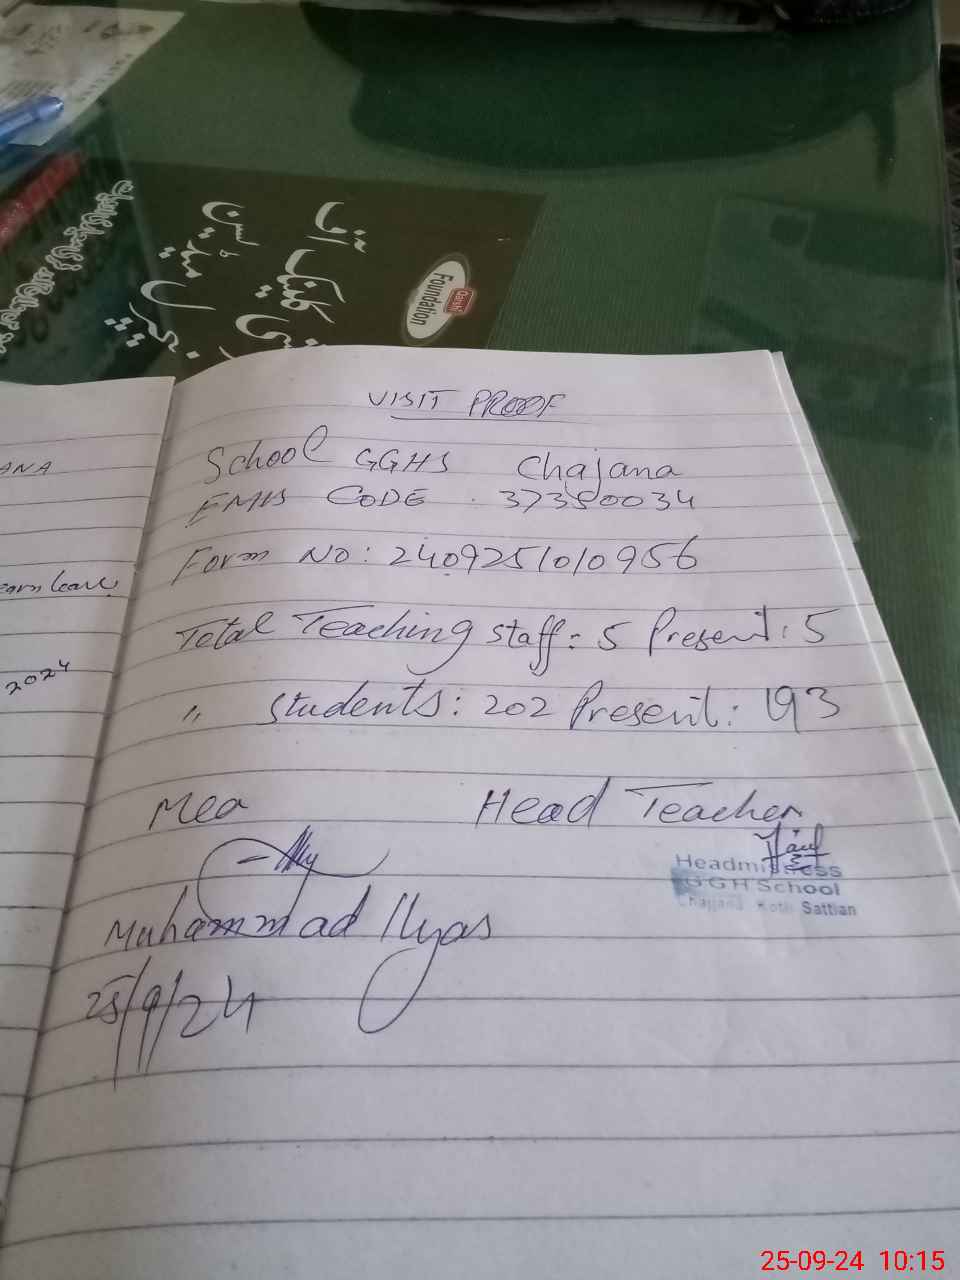 VISIT PROOF
School GGHS Chajana
EMIS CODE . 37350034
Form No: 240925/010956
Total Teaching staff: 5 Present: 5
" students: 202 Present: 193
Mea Head Teacher
Headmistress
GGH School
Chajjana Kotli Sattian
Muhammad Ilyas
25/9/24
ANA
earn leave
2024
Qarshi
Foundation
25-09-24 10:15